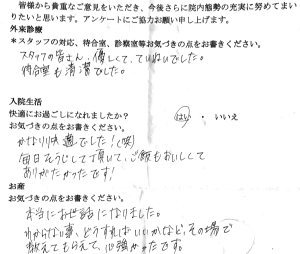 皆様から貴重なご意見をいただき、今後さらに院内態勢の充実に努めてまい
りたいと思います。アンケートにご協力お願い申し上げます。
外来診療
*スタッフの対応、待合室、診察室等お気づきの点をお書きください。
スタッフの皆さん、優しくて、ていねいでした。
待合室も清潔でした。
入院生活
快適にお過ごしになれましたか？ はい ・ いいえ
お気づきの点をお書きください。
かなり快適でした！(笑)
毎日そうじして頂いて、ご飯もおいしくて
ありがたかったです！
お産
お気づきの点をお書きください。
本当にお世話になりました。
わからない事、どうすればいいかなど、その場で
教えてもらえて、心強かったです。